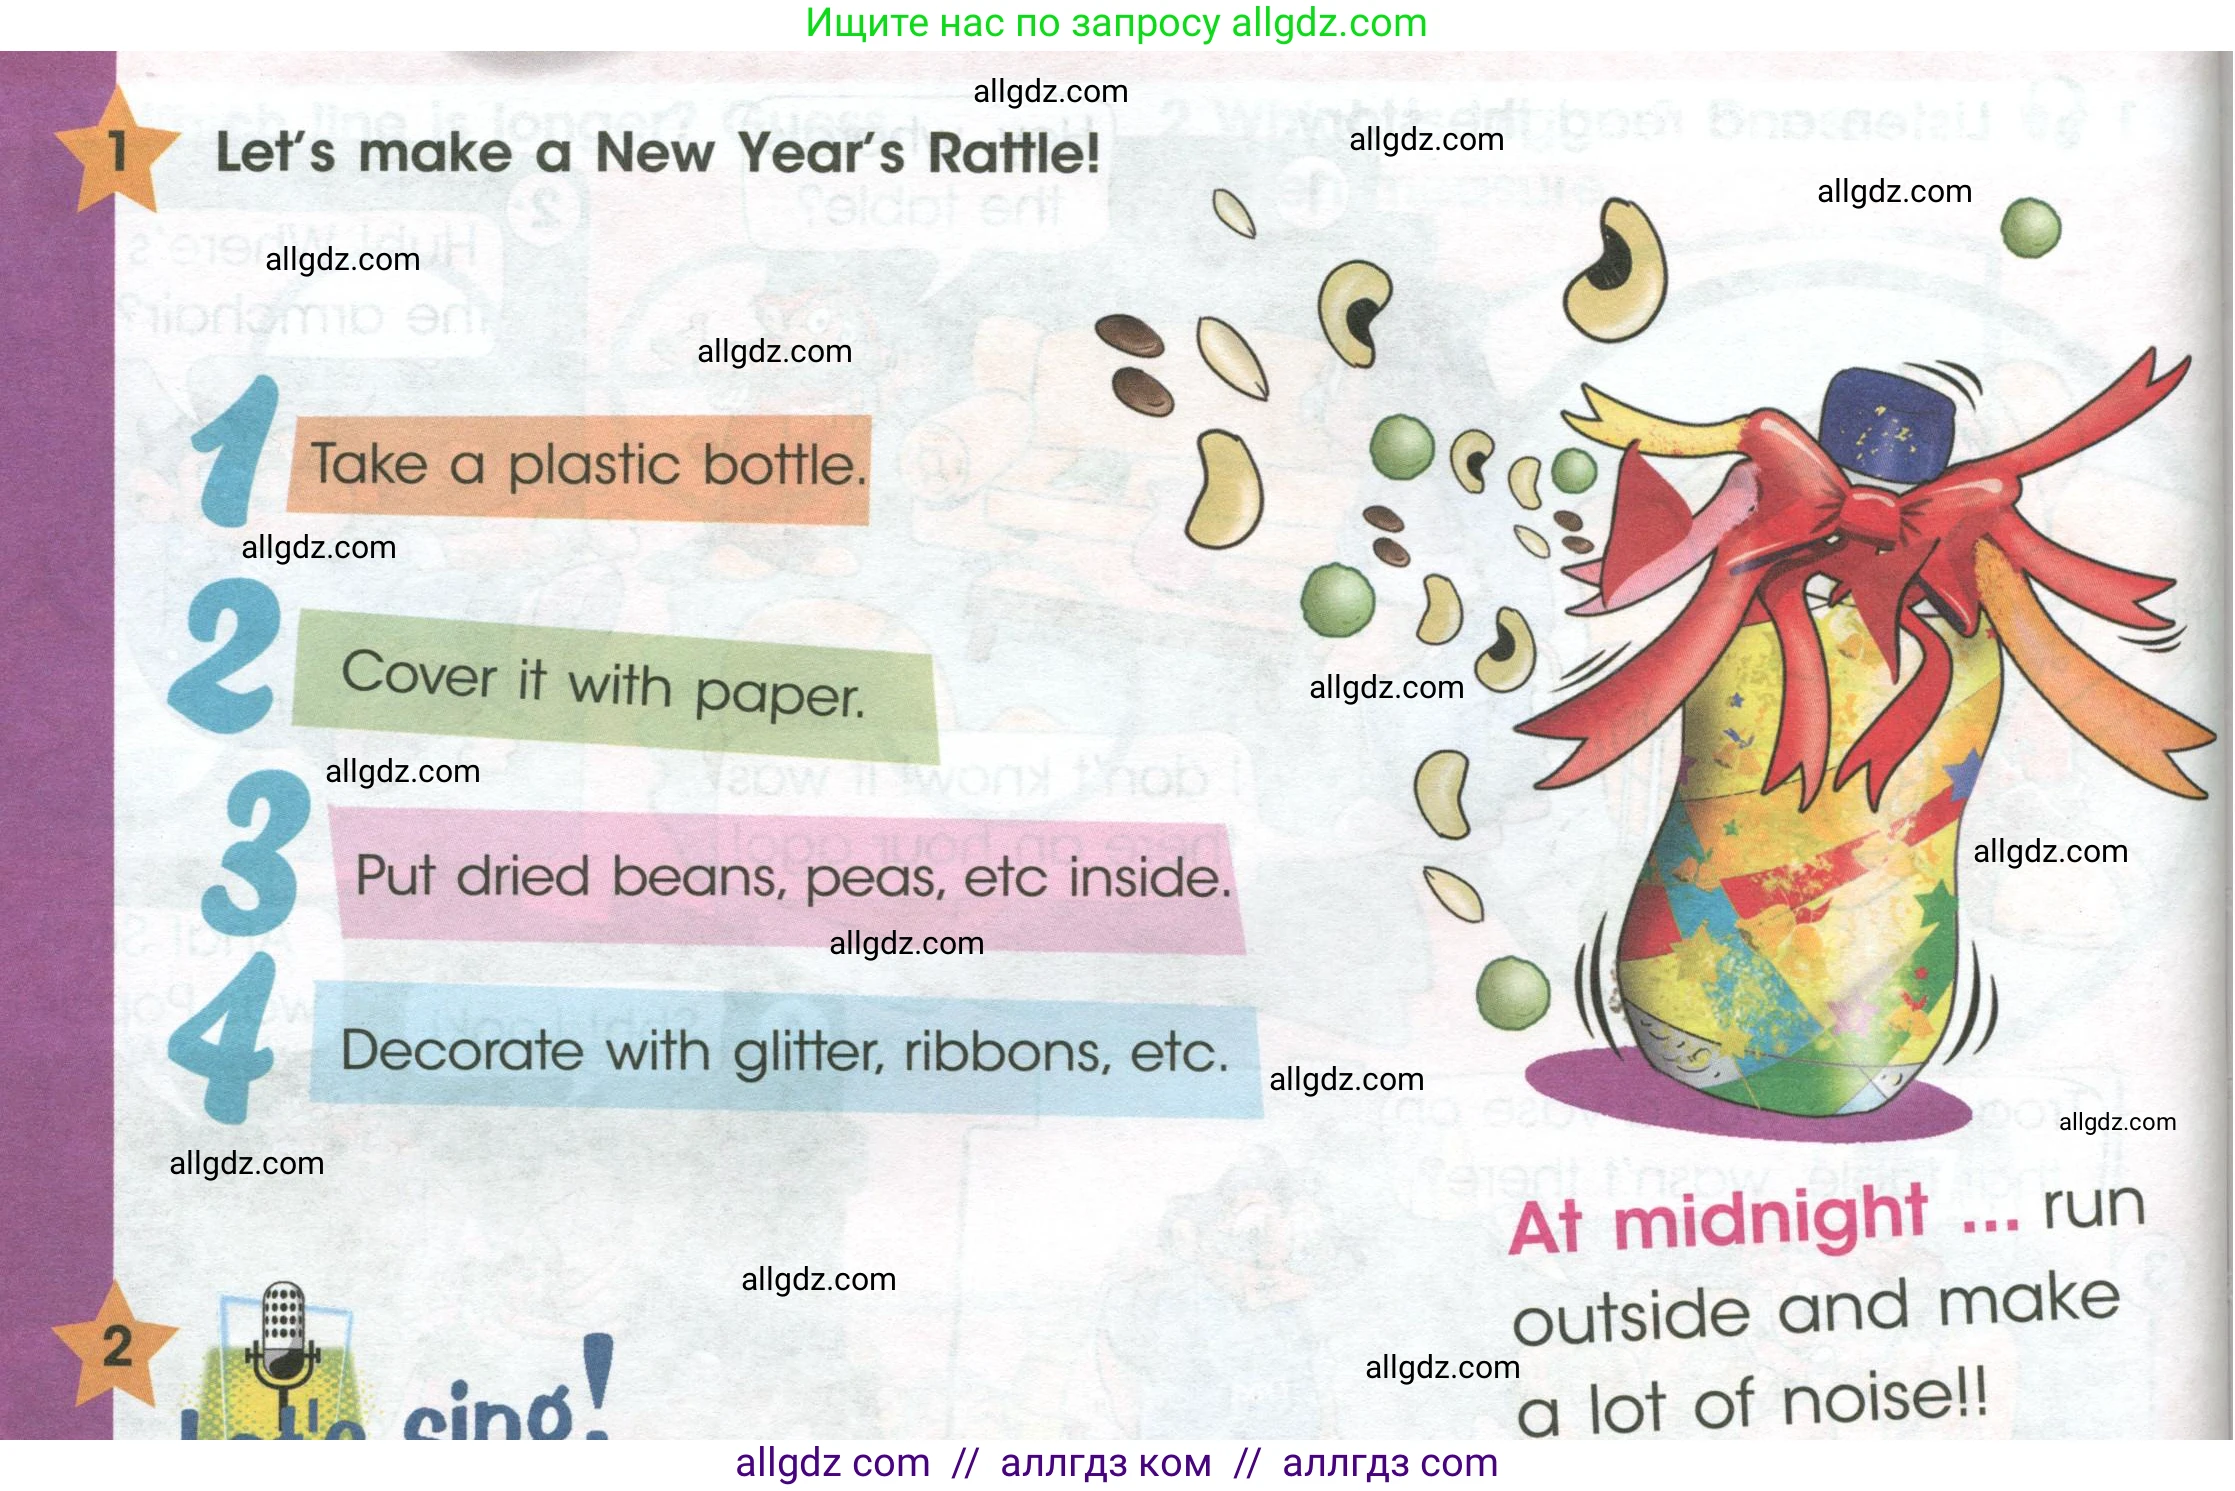 Ищите нас по запросу allgdz.com
allgdz.com
1 Let's make a New Year's Rattle!
allgdz.com
allgdz.com
allgdz.com
allgdz.com
1 Take a plastic bottle.
allgdz.com
2 Cover it with paper.
allgdz.com
allgdz.com
3 Put dried beans, peas, etc inside.
allgdz.com
allgdz.com
4 Decorate with glitter, ribbons, etc.
allgdz.com
allgdz.com
allgdz.com
At midnight ... run
outside and make
a lot of noise!!
allgdz.com
allgdz.com
2 Let's sing!
allgdz com // аллгдз ком // аллгдз com